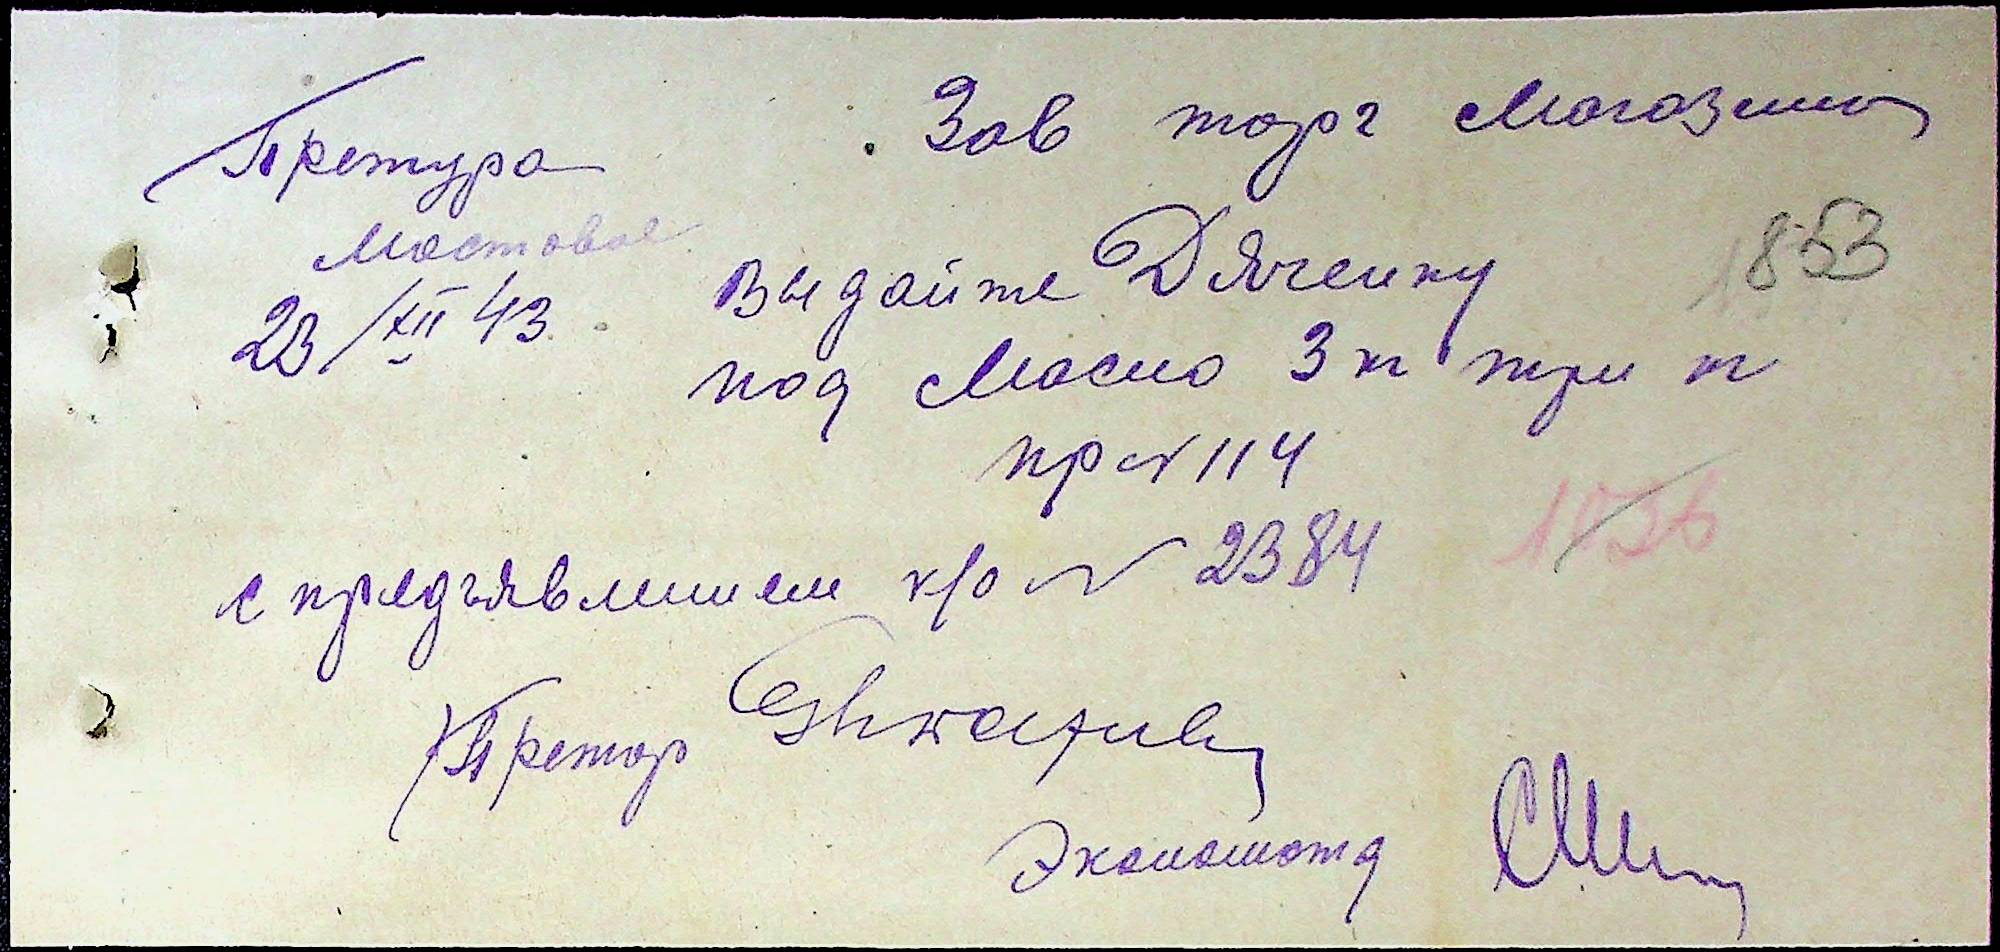 Претура
Мостовое
23/XII 43
Зав торг Магазина
853
Выдайте Дяченку
под Масло 3 к три к
пр № 114
1036
с предъявлением к/о № 2384
Претор
Экономотд